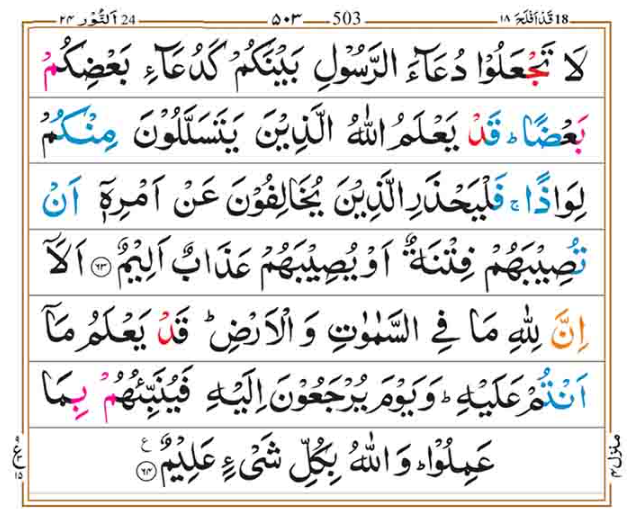 قَدْ اَفْلَحَ 18 ١٨ 503 ٥٠٣ 24 اَلنُّوْر ٢٤
لَا تَجْعَلُوْا دُعَآءَ الرَّسُوْلِ بَيْنَكُمْ كَدُعَآءِ بَعْضِكُمْ
بَعْضًا ؕ قَدْ يَعْلَمُ اللّٰهُ الَّذِيْنَ يَتَسَلَّلُوْنَ مِنْكُمْ
لِوَاذًا ۚ فَلْيَحْذَرِ الَّذِيْنَ يُخَالِفُوْنَ عَنْ اَمْرِهٖۤ اَنْ
تُصِيْبَهُمْ فِتْنَةٌ اَوْ يُصِيْبَهُمْ عَذَابٌ اَلِيْمٌ ﴿٦٣﴾ اَلَاۤ
اِنَّ لِلّٰهِ مَا فِي السَّمٰوٰتِ وَ الْاَرْضِ ؕ قَدْ يَعْلَمُ مَاۤ
اَنْتُمْ عَلَيْهِ ؕ وَ يَوْمَ يُرْجَعُوْنَ اِلَيْهِ فَيُنَبِّئُهُمْ بِمَا
عَمِلُوْا ؕ وَ اللّٰهُ بِكُلِّ شَيْءٍ عَلِيْمٌ ﴿٦٤﴾ ع
منزل ٤